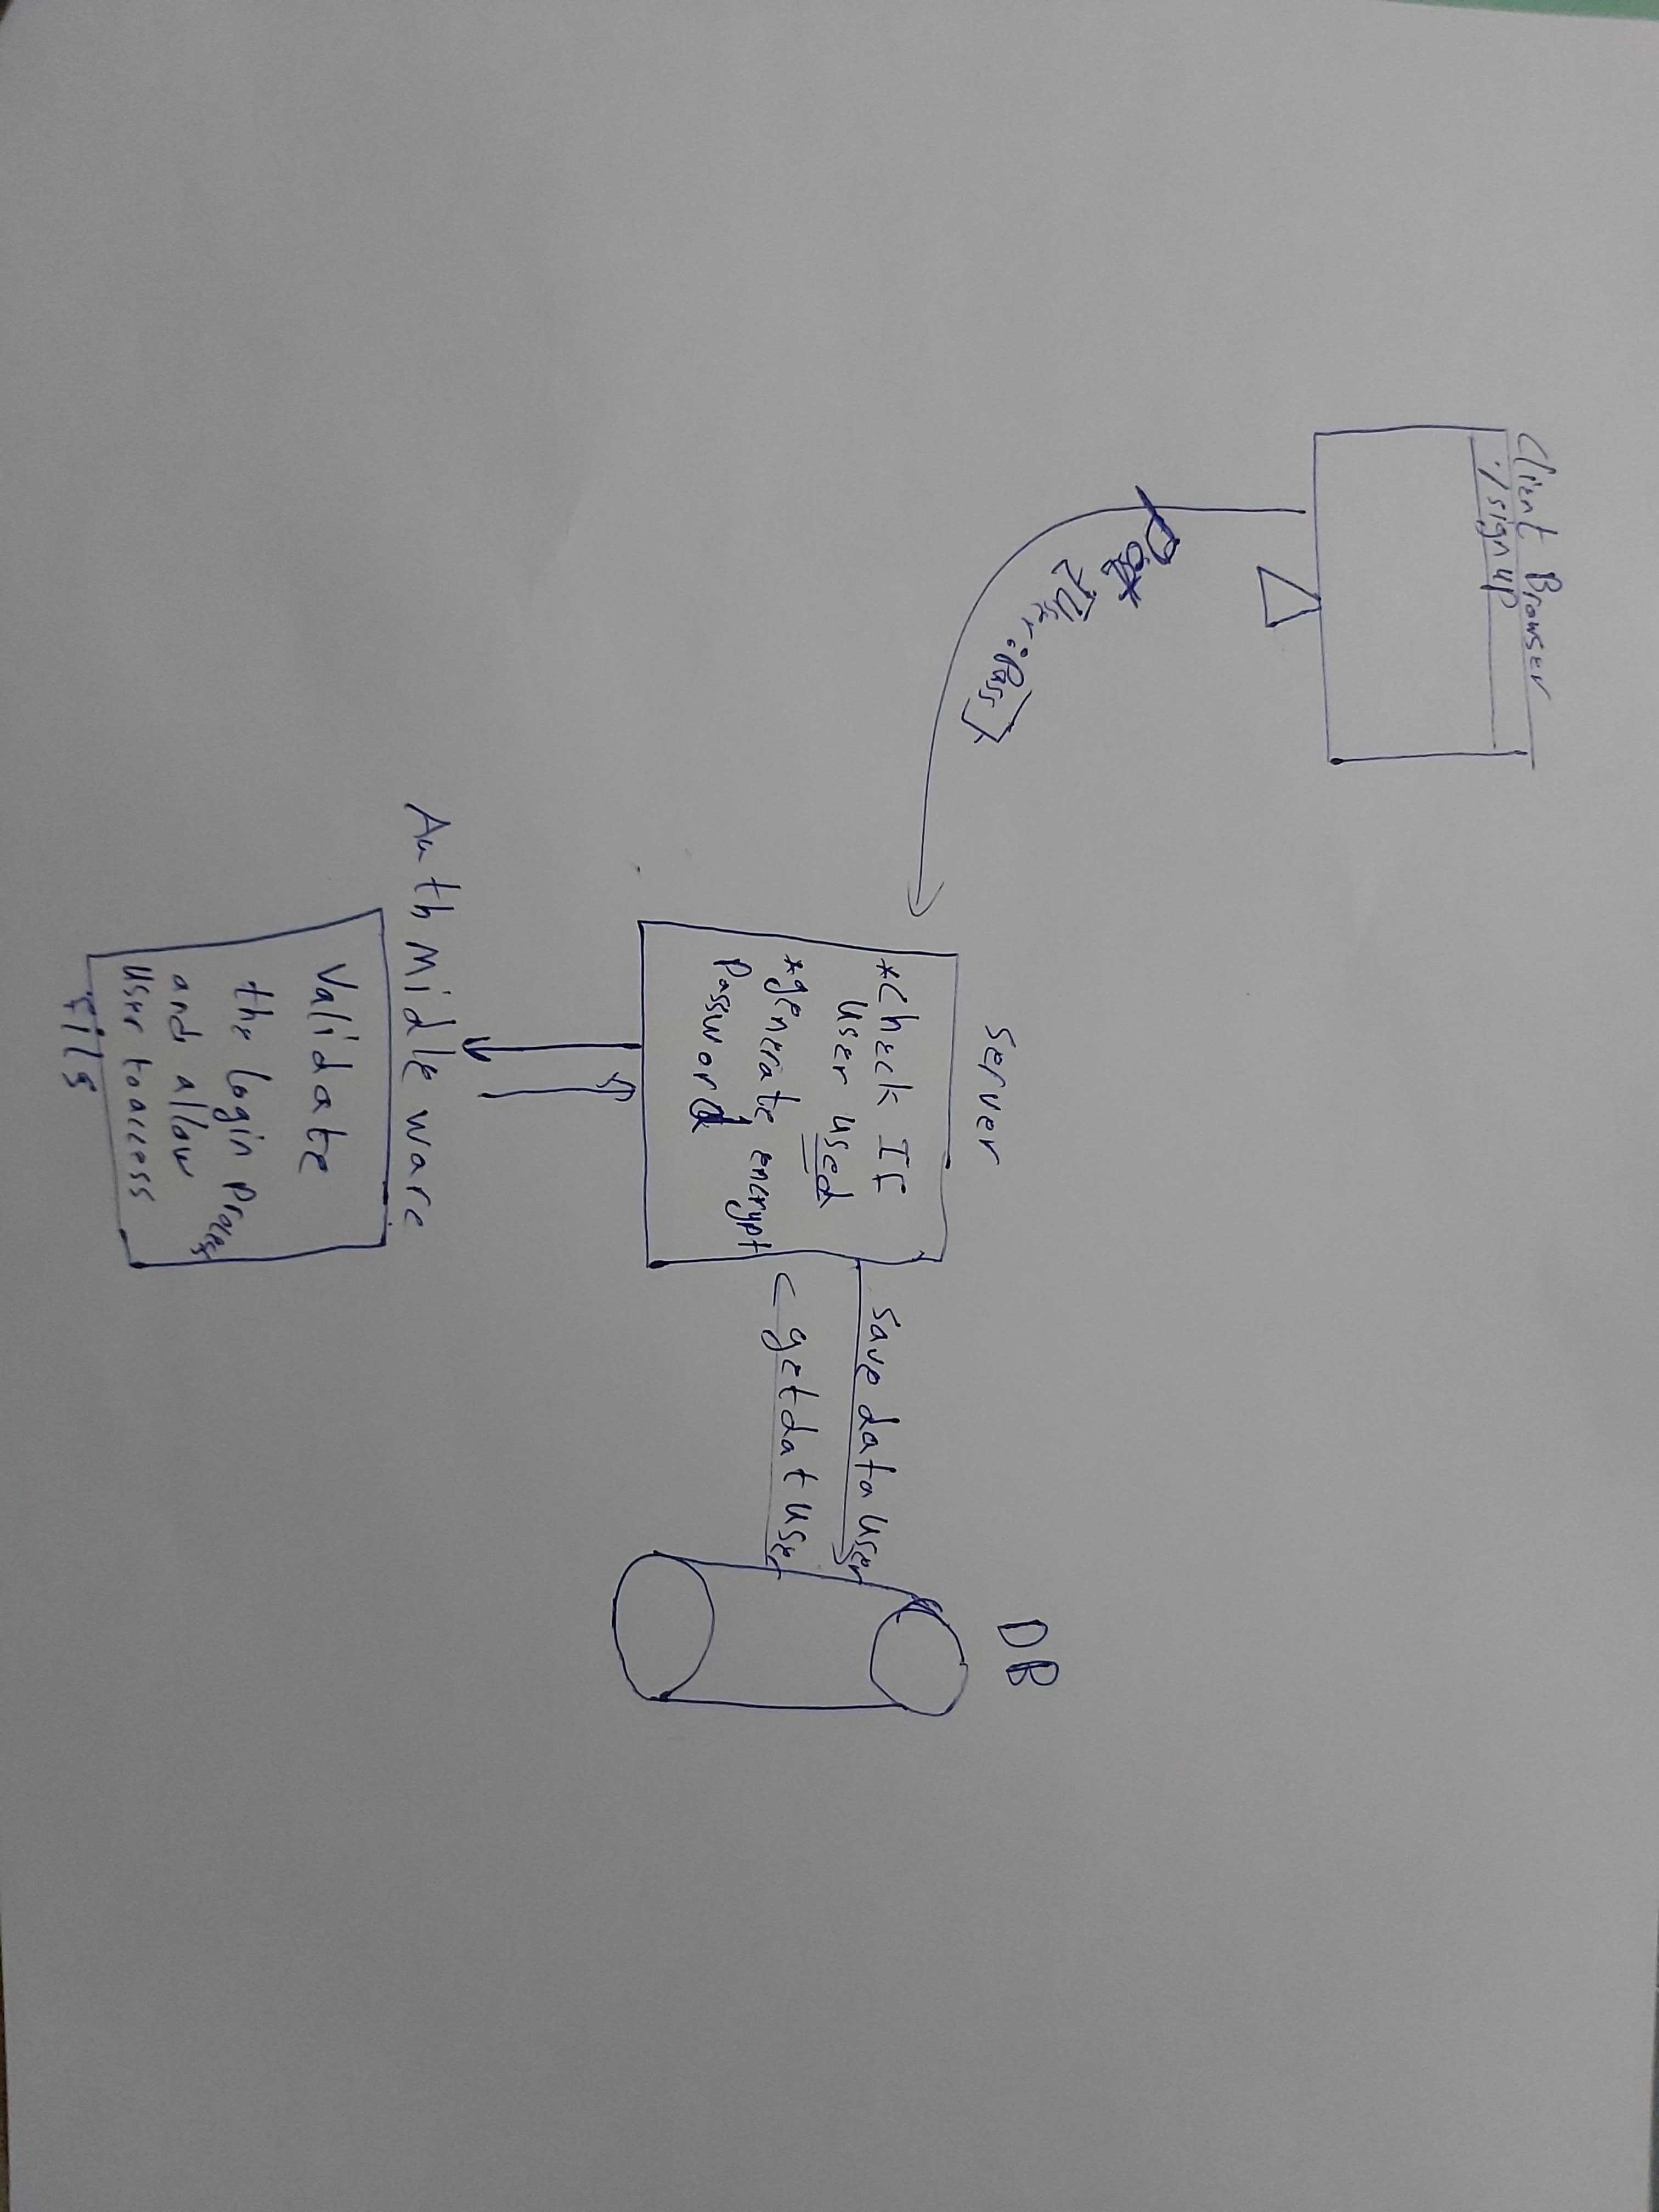 Client Browser
:/signup
Post
{User:Pass}
Server
*Check If
User used
*generate encrypt
Password
Save data User
getdat User
DB
Auth Midleware
Validate
the login Process
and allow
User to access